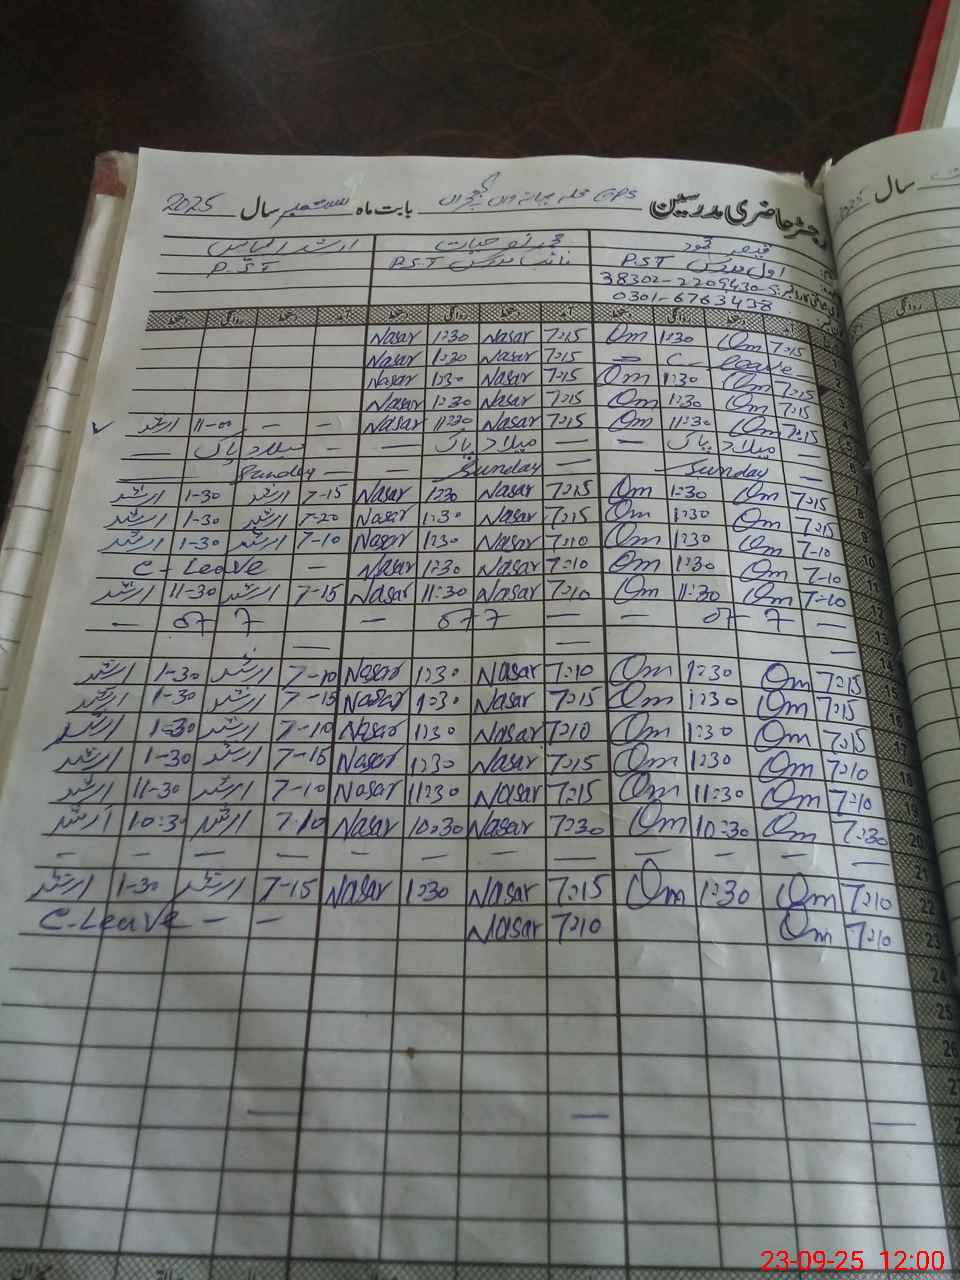 رجسٹر حاضری مدرسین GPS بابت ماہ ستمبر سال 2025
سال 2025
قیصر محمود محمد نصر حیات ارشد الیاس
اول مدرس P.S.T نائب مدرس P.S.T P.S.T
38302-2209430-5
0301-6763438
آمد دستخط روانگی دستخط آمد دستخط روانگی دستخط آمد دستخط روانگی دستخط
1 7:15 Om 1:30 Om 7:15 Nasar 1:30 Nasar
2 C leave 7:15 Nasar 1:30 Nasar
3 7:15 Om 1:30 Om 7:15 Nasar 1:30 Nasar
4 7:15 Om 1:30 Om 7:15 Nasar 1:30 Nasar
5 7:15 Om 11:30 Om 7:15 Nasar 11:30 Nasar - - 11-00 ارشد
6 — میلاد پاک — — میلاد پاک — - میلاد پاک —
7 — Sunday — Sunday — Sunday —
8 7:15 Om 1:30 Om 7:15 Nasar 1:30 Nasar 7-15 ارشد 1-30 ارشد
9 7:15 Om 1:30 Om 7:15 Nasar 1:30 Nasar 7-20 ارشد 1-30 ارشد
10 7-10 Om 1:30 Om 7:10 Nasar 1:30 Nasar 7-10 ارشد 1-30 ارشد
11 7-10 Om 1:30 Om 7:10 Nasar 1:30 Nasar — C-Leave
12 7:10 Om 11:30 Om 7:10 Nasar 11:30 Nasar 7-15 ارشد 11-30 ارشد
13 — — — —
14 — — —
15 7:15 Om 1:30 Om 7:10 Nasar 1:30 Nasar 7-10 ارشد 1-30 ارشد
16 7:15 Om 1:30 Om 7:15 Nasar 1:30 Nasar 7-15 ارشد 1-30 ارشد
17 7:15 Om 1:30 Om 7:10 Nasar 1:30 Nasar 7-10 ارشد 1-30 ارشد
18 7:10 Om 1:30 Om 7:15 Nasar 1:30 Nasar 7-15 ارشد 1-30 ارشد
19 7:10 Om 11:30 Om 7:15 Nasar 11:30 Nasar 7-10 ارشد 11-30 ارشد
20 7:30 Om 10:30 Om 7:30 Nasar 10:30 Nasar 7:10 ارشد 10:30 ارشد
21 — — — — — — — — — — — —
22 7:10 Om 1:30 Om 7:15 Nasar 1:30 Nasar 7-15 ارشد 1-30 ارشد
23 7:10 Om 7:10 Nasar — — C-Leave
24
25
26
27
23-09-25 12:00